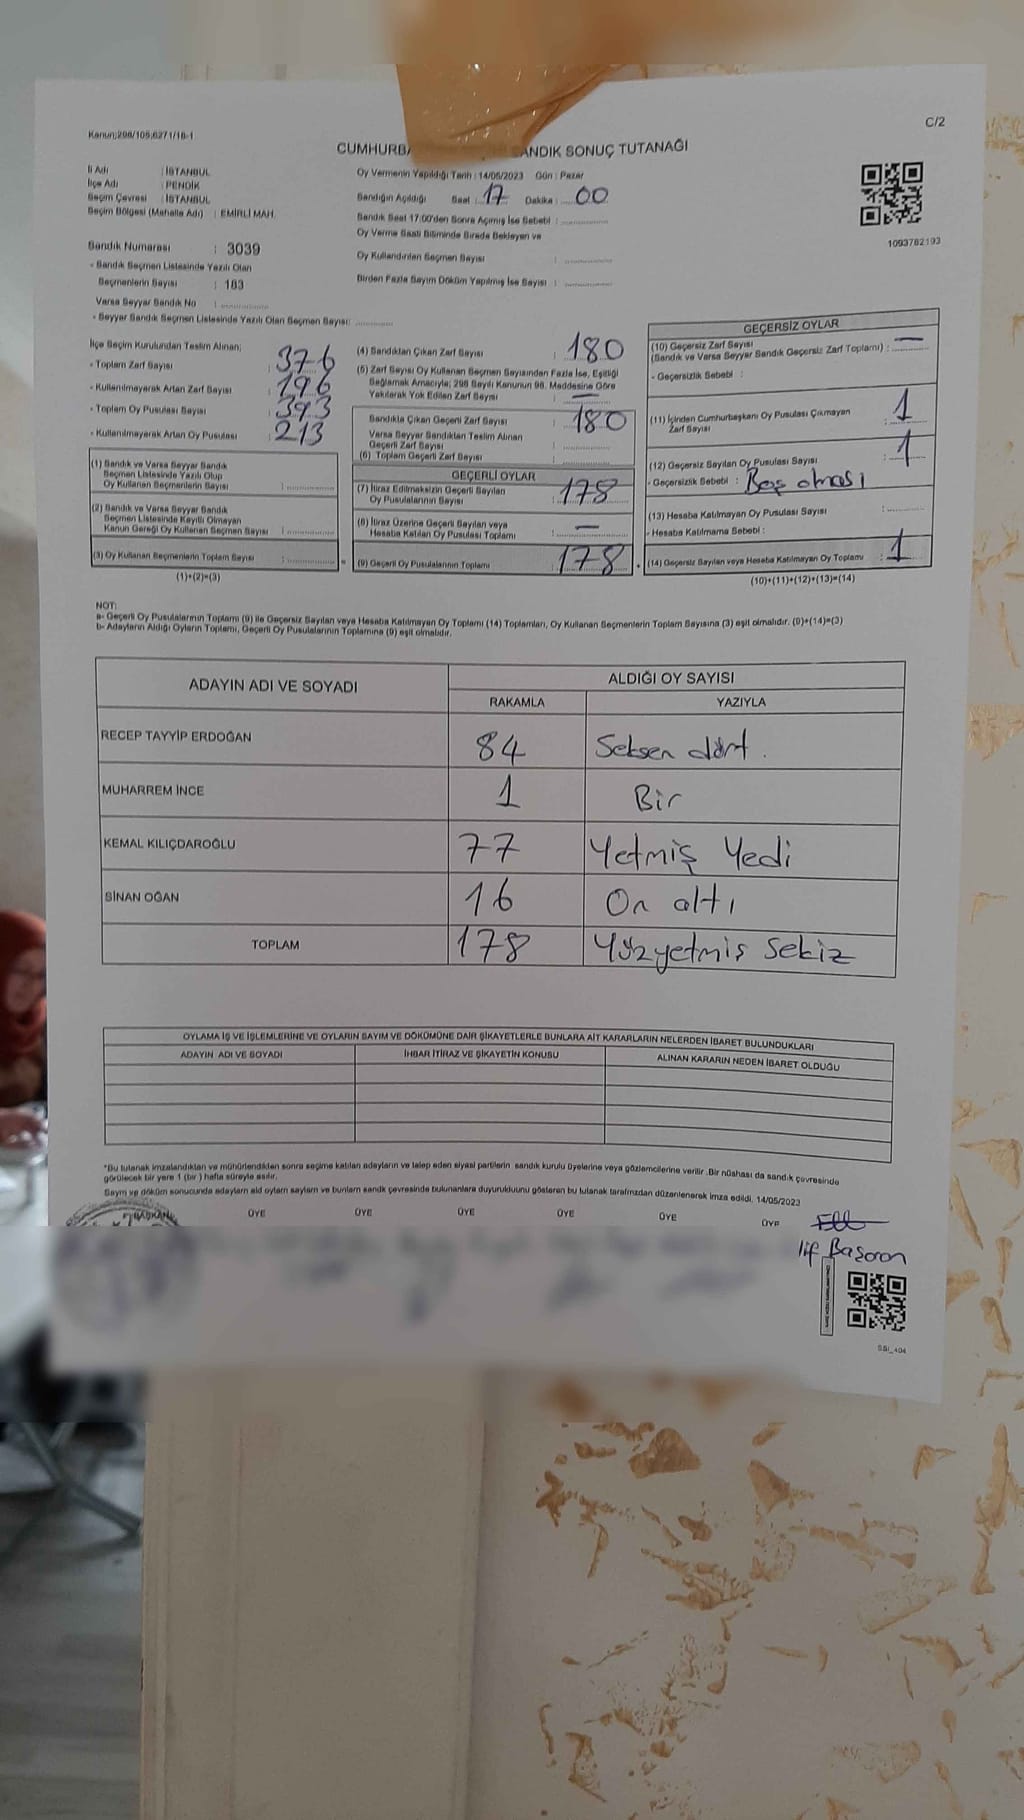 Kanun;298/105;6271/18-1
C/2
CUMHURBA ANDIK SONUÇ TUTANAĞI
İl Adı : İSTANBUL
İlçe Adı : PENDİK
Seçim Çevresi : İSTANBUL
Seçim Bölgesi (Mahalle Adı) : EMİRLİ MAH.
Oy Vermenin Yapıldığı Tarih : 14/05/2023 Gün : Pazar
Sandığın Açıldığı Saat : 17 Dakika : 00
Sandık Saat 17:00'den Sonra Açılmış İse Sebebi :
Oy Verme Saati Bitiminde Sırada Bekleyen ve
Oy Kullandırılan Seçmen Sayısı :
Birden Fazla Sayım Döküm Yapılmış İse Sayısı :
1093782193
Sandık Numarası : 3039
- Sandık Seçmen Listesinde Yazılı Olan
Seçmenlerin Sayısı : 183
Varsa Seyyar Sandık No :
- Seyyar Sandık Seçmen Listesinde Yazılı Olan Seçmen Sayısı:
İlçe Seçim Kurulundan Teslim Alınan;
- Toplam Zarf Sayısı : 376
- Kullanılmayarak Artan Zarf Sayısı : 196
- Toplam Oy Pusulası Sayısı : 393
- Kullanılmayarak Artan Oy Pusulası : 213
(1) Sandık ve Varsa Seyyar Sandık
Seçmen Listesinde Yazılı Olup
Oy Kullanan Seçmenlerin Sayısı :
(2) Sandık ve Varsa Seyyar Sandık
Seçmen Listesinde Kayıtlı Olmayan
Kanun Gereği Oy Kullanan Seçmen Sayısı :
(3) Oy Kullanan Seçmenlerin Toplam Sayısı : =
(1)+(2)=(3)
(4) Sandıktan Çıkan Zarf Sayısı : 180
(5) Zarf Sayısı Oy Kullanan Seçmen Sayısından Fazla İse, Eşitliği
Sağlamak Amacıyla; 298 Sayılı Kanunun 98. Maddesine Göre
Yakılarak Yok Edilen Zarf Sayısı : —
Sandıkta Çıkan Geçerli Zarf Sayısı : 180
Varsa Seyyar Sandıktan Teslim Alınan
Geçerli Zarf Sayısı :
(6) Toplam Geçerli Zarf Sayısı :
GEÇERLİ OYLAR
(7) İtiraz Edilmeksizin Geçerli Sayılan
Oy Pusulalarının Sayısı : 178
(8) İtiraz Üzerine Geçerli Sayılan veya
Hesaba Katılan Oy Pusulası Toplamı : —
(9) Geçerli Oy Pusulalarının Toplamı : 178 +
GEÇERSİZ OYLAR
(10) Geçersiz Zarf Sayısı
(Sandık ve Varsa Seyyar Sandık Geçersiz Zarf Toplamı) : —
- Geçersizlik Sebebi :
(11) İçinden Cumhurbaşkanı Oy Pusulası Çıkmayan
Zarf Sayısı : 1
(12) Geçersiz Sayılan Oy Pusulası Sayısı : 1
- Geçersizlik Sebebi : Boş olması
(13) Hesaba Katılmayan Oy Pusulası Sayısı :
- Hesaba Katılmama Sebebi :
(14) Geçersiz Sayılan veya Hesaba Katılmayan Oy Toplamı : 1
(10)+(11)+(12)+(13)=(14)
NOT:
a- Geçerli Oy Pusulalarının Toplamı (9) ile Geçersiz Sayılan veya Hesaba Katılmayan Oy Toplamı (14) Toplamları, Oy Kullanan Seçmenlerin Toplam Sayısına (3) eşit olmalıdır. (9)+(14)=(3)
b- Adayların Aldığı Oyların Toplamı, Geçerli Oy Pusulalarının Toplamına (9) eşit olmalıdır.
ADAYIN ADI VE SOYADI
ALDIĞI OY SAYISI
RAKAMLA YAZIYLA
RECEP TAYYİP ERDOĞAN 84 Seksen dört.
MUHARREM İNCE 1 Bir
KEMAL KILIÇDAROĞLU 77 Yetmiş Yedi
SİNAN OĞAN 16 On altı
TOPLAM 178 Yüzyetmiş Sekiz
OYLAMA İŞ VE İŞLEMLERİNE VE OYLARIN SAYIM VE DÖKÜMÜNE DAİR ŞİKAYETLERLE BUNLARA AİT KARARLARIN NELERDEN İBARET BULUNDUKLARI
ADAYIN ADI VE SOYADI İHBAR İTİRAZ VE ŞİKAYETİN KONUSU ALINAN KARARIN NEDEN İBARET OLDUĞU
*Bu tutanak imzalandıktan ve mühürlendikten sonra seçime katılan adayların ve talep eden siyasi partilerin sandık kurulu üyelerine veya gözlemcilerine verilir. Bir nüshası da sandık çevresinde
görülecek bir yere 1 (bir ) hafta süreyle asılır.
Sayım ve döküm sonucunda adayların ald oyların sayların ve bunların sandk çevresinde bulunanlara duyurulduunu gösteren bu tutanak tarafmzdan düzenlenerek imza edildi. 14/05/2023
BAŞKAN ÜYE ÜYE ÜYE ÜYE ÜYE ÜYE
lif Başaran
SSI_404